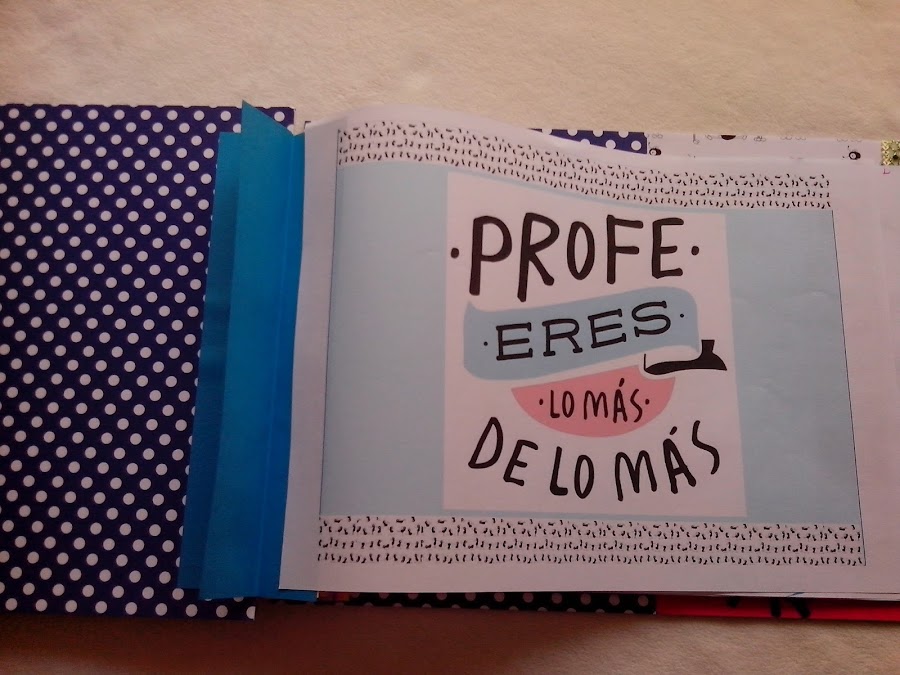 ·PROFE·
·ERES·
·LO MÁS·
DE LO MÁS